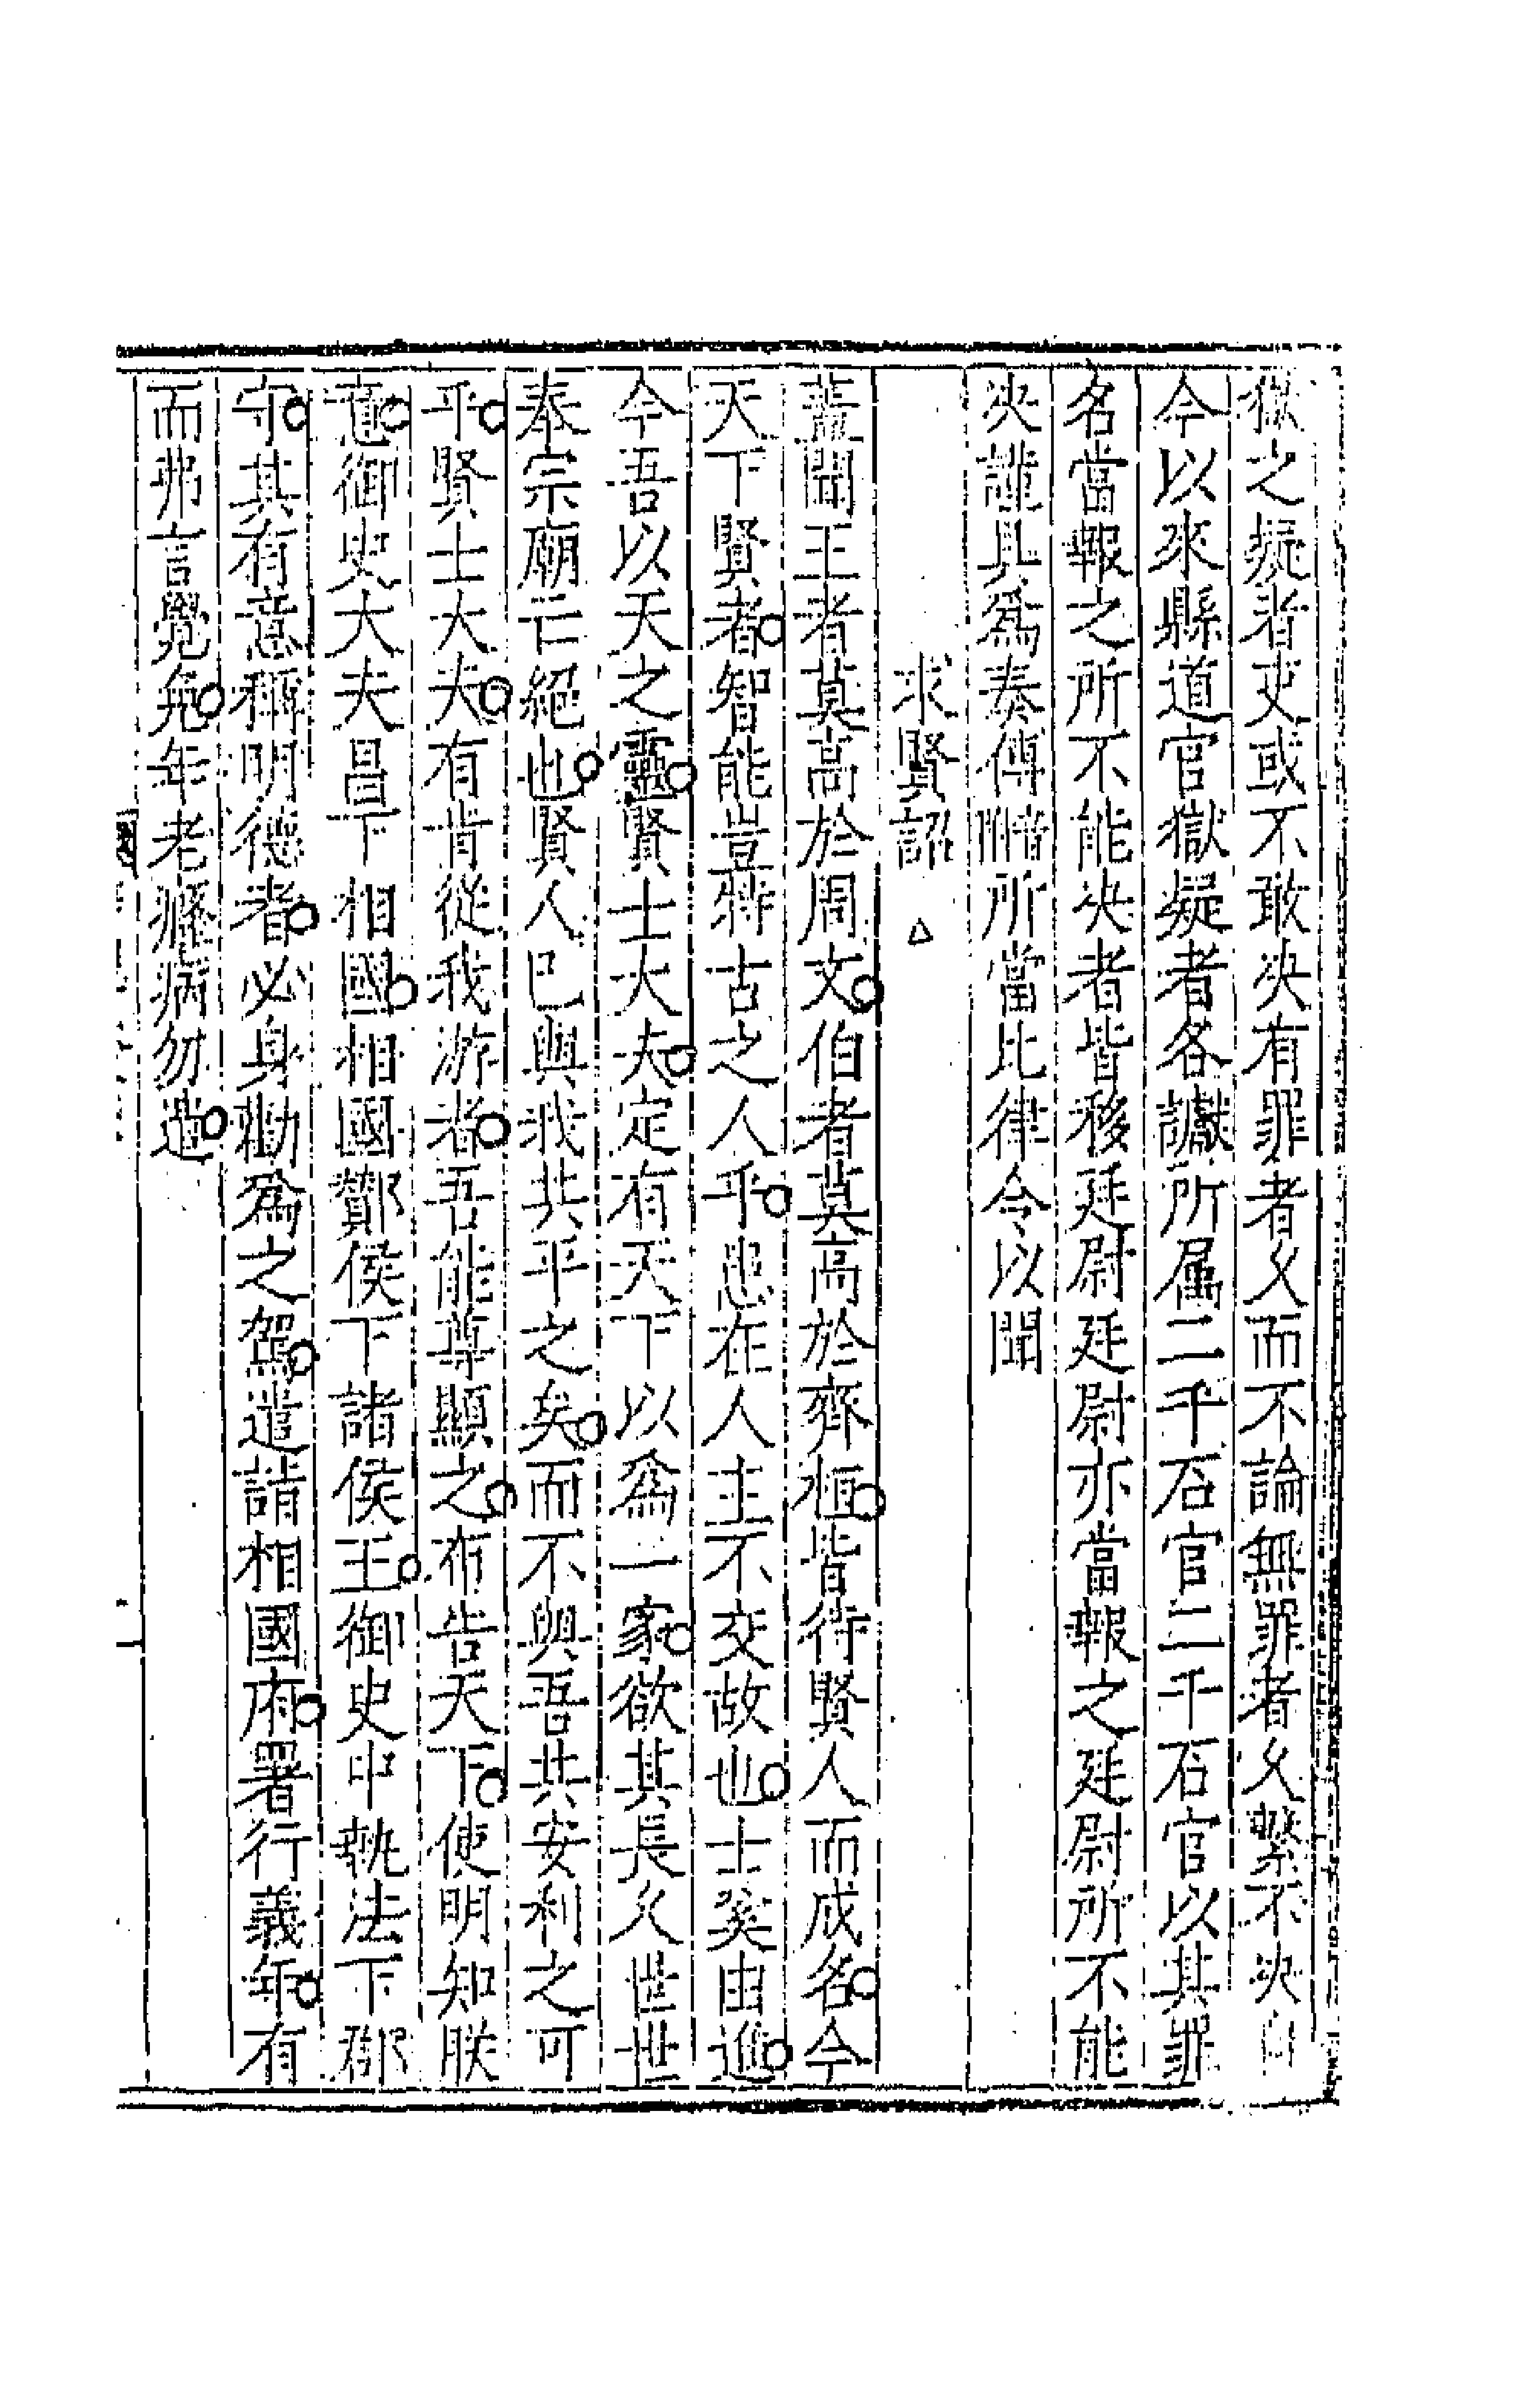 獄之疑者吏或不敢决有罪者乆而不論無罪者乆繫不决自
今以來縣道官獄疑者各讞所属二千石官二千石官以其罪
名當報之所不能决者皆移廷尉廷尉亦當報之廷尉所不能
决謹具為奏傅所當比律令以聞
求賢詔 △
蓋聞王者莫高於周文伯者莫高於齊桓皆待賢人而成名今
天下賢者智能豈特古之人乎患在人主不交故也士奚由進
今吾以天之靈賢士大夫定有天下以為一家欲其長乆世世
奉宗廟亡絕也賢人已與我共平之矣而不與吾共安利之可
乎賢士大夫有肯從我游者吾能尊顯之布告天下使明知朕
意御史大夫昌下相國相國酇侯下諸侯王御史中執法下郡
守其有意稱明德者必身勸為之駕遣詣相國府署行義年有
而弗言覺免年老癃病勿遣